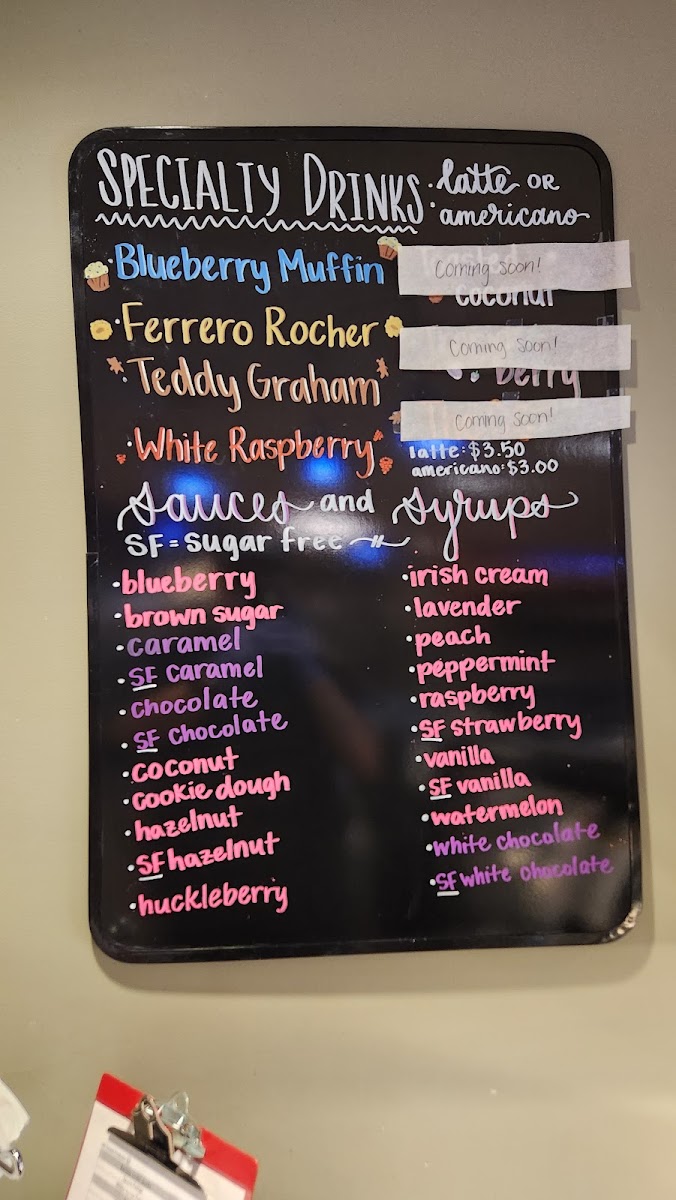 SPECIALTY DRINKS
·latte OR
·americano
·Blueberry Muffin
·Ferrero Rocher
·Teddy Graham
·White Raspberry
Coming soon!
coconut
Coming Soon!
berry
Coming Soon!
latte: $3.50
americano: $3.00
sauces and syrups
SF = sugar free
·blueberry
·brown sugar
·caramel
·SF caramel
·chocolate
·SF chocolate
·coconut
·cookie dough
·hazelnut
·SF hazelnut
·huckleberry
·irish cream
·lavender
·peach
·peppermint
·raspberry
·SF strawberry
·vanilla
·SF vanilla
·watermelon
·white chocolate
·SF white chocolate